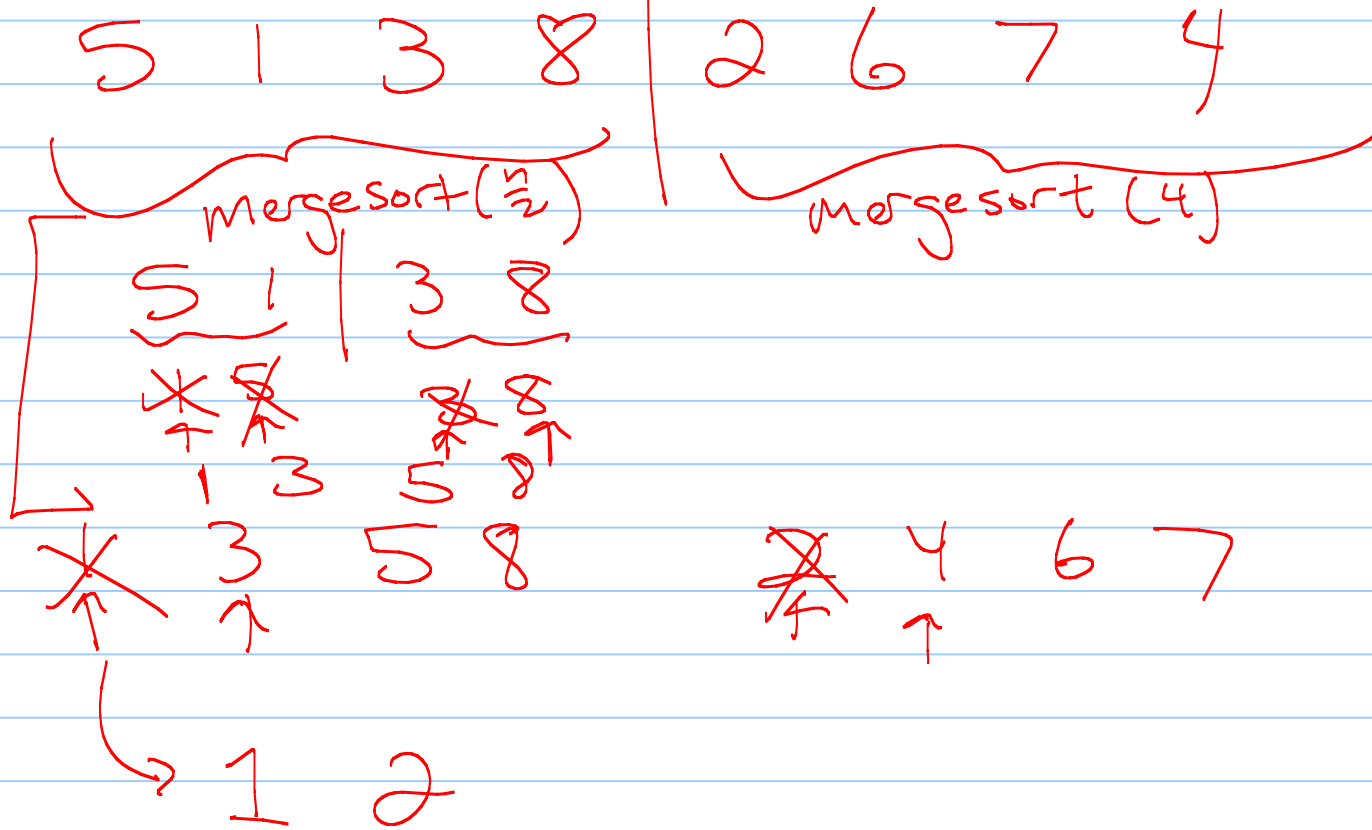 5 1 3 8 | 2 6 7 4
mergesort(n/2) mergesort (4)
5 1 | 3 8
1 5 3 8
1 3 5 8
1 3 5 8 2 4 6 7
1 2